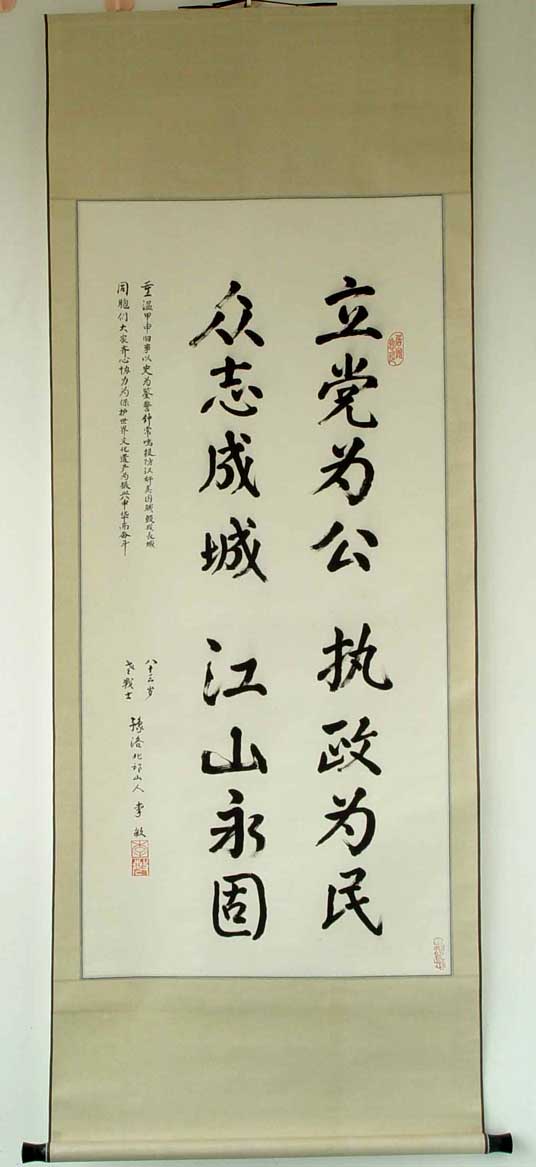 立党为公 执政为民
众志成城 江山永固
重温甲申旧事以史为鉴警钟常鸣提防汉奸美国贼毁我长城
同胞们大家齐心协力为保护世界文化遗产为振兴中华而奋斗
八十三岁
老战士
豫洛北邙山人 李敏